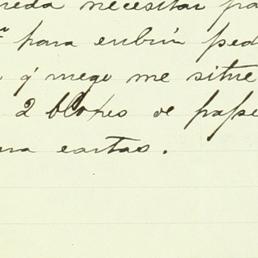 ueda necesitar pa
para cubrir ped
q' ruego me situe
2 blopes de pape
ara cartas.